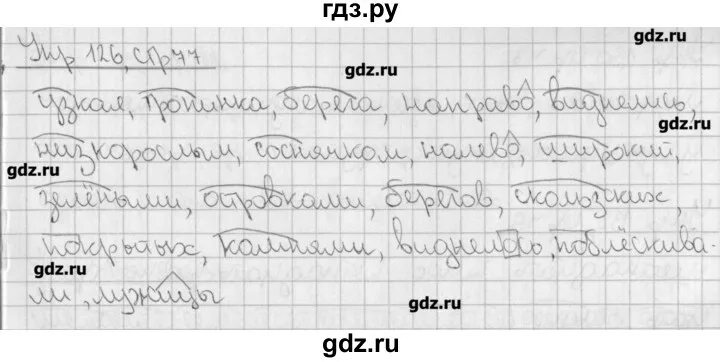 гдз.ру
gdz.ru
Упр 126, стр 77
gdz.ru
узкая, тропинка, берега, направо, виднелись,
gdz.ru
низкорослым, соснячком, налево, широкий,
gdz.ru
зелёными, островками, берегов, скользких,
gdz.ru
покрытых, камнями, виднелось, поблёскива-
gdz.ru
ли, лужицы
gdz.ru
гдз.ру